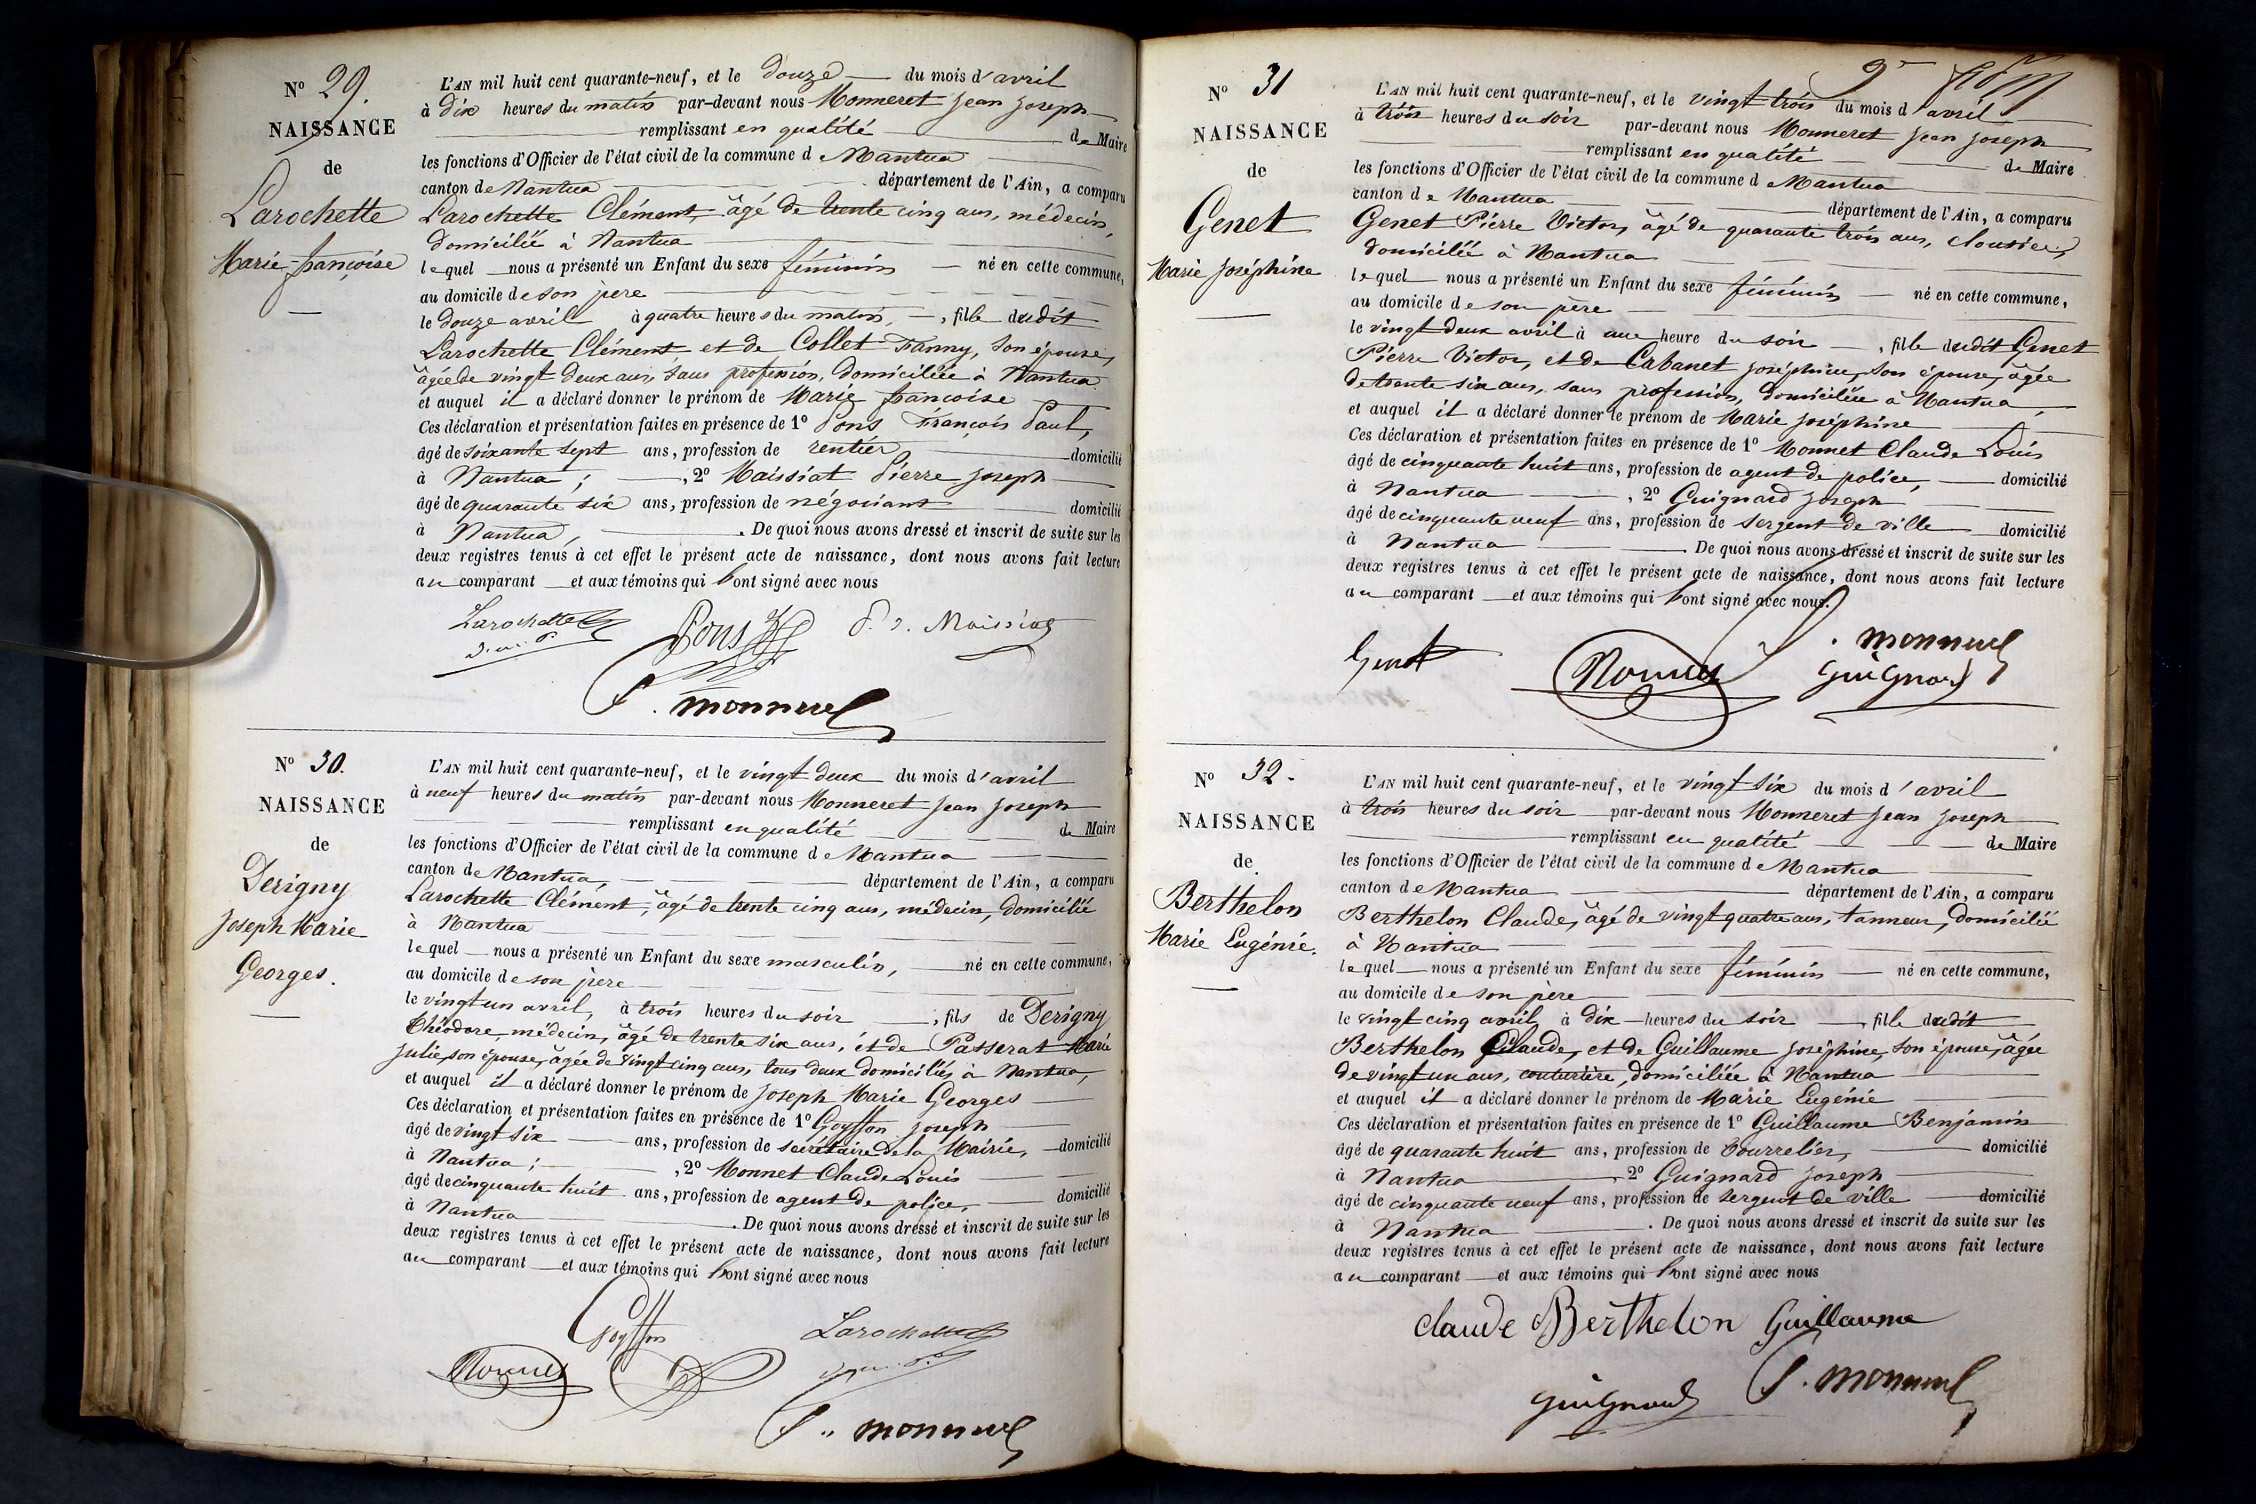 Nº 29.
NAISSANCE
de
Larochette
Marie françoise
L'AN mil huit cent quarante-neuf, et le douze du mois d'avril
à dix heures du matin par-devant nous Monneret Jean Joseph
remplissant en qualité de Maire
les fonctions d'Officier de l'état civil de la commune de Nantua
canton de Nantua département de l'Ain, a comparu
Larochette Clément, âgé de trente cinq ans, médecin,
domicilié à Nantua
lequel nous a présenté un Enfant du sexe féminin né en cette commune,
au domicile de son père
le douze avril à quatre heures du matin, , fille dudit
Larochette Clément et de Collet Fanny, son épouse,
âgée de vingt deux ans, sans profession, domiciliée à Nantua
et auquel il a déclaré donner le prénom de Marie françoise
Ces déclaration et présentation faites en présence de 1º Pons François Paul,
âgé de soixante sept ans, profession de rentier domicilié
à Nantua ; , 2º Maissiat Pierre Joseph
âgé de quarante six ans, profession de négociant domicilié
à Nantua, . De quoi nous avons dressé et inscrit de suite sur les
deux registres tenus à cet effet le présent acte de naissance, dont nous avons fait lecture
au comparant et aux témoins qui l'ont signé avec nous
Larochette Pons P. J. Maissiat
Monneret
Nº 30.
NAISSANCE
de
Derigny
Joseph Marie
Georges.
L'AN mil huit cent quarante-neuf, et le vingt deux du mois d'avril
à neuf heures du matin par-devant nous Monneret Jean Joseph
remplissant en qualité de Maire
les fonctions d'Officier de l'état civil de la commune de Nantua
canton de Nantua, département de l'Ain, a comparu
Larochette Clément, âgé de trente cinq ans, médecin, domicilié
à Nantua
lequel nous a présenté un Enfant du sexe masculin, né en cette commune,
au domicile de son père
le vingt un avril, à trois heures du soir , fils de Derigny
Théodore, médecin, âgé de trente six ans, et de Passerat Marie
Julie, son épouse, âgée de vingt cinq ans, tous deux domiciliés à Nantua,
et auquel il a déclaré donner le prénom de Joseph Marie Georges
Ces déclaration et présentation faites en présence de 1º Goyffon Joseph
âgé de vingt six ans, profession de secrétaire de la Mairie, domicilié
à Nantua ; , 2º Monnet Claude Louis
âgé de cinquante huit ans, profession de agent de police, domicilié
à Nantua . De quoi nous avons dressé et inscrit de suite sur les
deux registres tenus à cet effet le présent acte de naissance, dont nous avons fait lecture
au comparant et aux témoins qui l'ont signé avec nous
Goyffon Larochette
Monnet
Monneret
Nº 31
NAISSANCE
de
Genet
Marie Joséphine
L'AN mil huit cent quarante-neuf, et le vingt trois du mois d'avril
à trois heures du soir par-devant nous Monneret Jean Joseph
remplissant en qualité de Maire
les fonctions d'Officier de l'état civil de la commune de Nantua
canton de Nantua département de l'Ain, a comparu
Genet Pierre Victor, âgé de quarante trois ans, cloutier,
domicilié à Nantua
lequel nous a présenté un Enfant du sexe féminin né en cette commune,
au domicile de son père
le vingt deux avril à une heure du soir , fille dudit Genet
Pierre Victor, et de Cabanet Joséphine, son épouse, âgée
de trente six ans, sans profession, domiciliée à Nantua,
et auquel il a déclaré donner le prénom de Marie Joséphine
Ces déclaration et présentation faites en présence de 1º Monnet Claude Louis
âgé de cinquante huit ans, profession de agent de police, domicilié
à Nantua , 2º Guignard Joseph
âgé de cinquante neuf ans, profession de sergent de ville domicilié
à Nantua . De quoi nous avons dressé et inscrit de suite sur les
deux registres tenus à cet effet le présent acte de naissance, dont nous avons fait lecture
au comparant et aux témoins qui l'ont signé avec nous.
Genet Monnet Monneret
Guignard
Nº 32.
NAISSANCE
de
Berthelon
Marie Eugénie.
L'AN mil huit cent quarante-neuf, et le vingt six du mois d'avril
à trois heures du soir par-devant nous Monneret Jean Joseph
remplissant en qualité de Maire
les fonctions d'Officier de l'état civil de la commune de Nantua
canton de Nantua département de l'Ain, a comparu
Berthelon Claude, âgé de vingt quatre ans, tanneur, domicilié
à Nantua
lequel nous a présenté un Enfant du sexe féminin né en cette commune,
au domicile de son père
le vingt cinq avril, à dix heures du soir , fille dudit
Berthelon Claude, et de Guillaume Joséphine, son épouse, âgée
de vingt un ans, couturière, domiciliée à Nantua
et auquel il a déclaré donner le prénom de Marie Eugénie
Ces déclaration et présentation faites en présence de 1º Guillaume Benjamin
âgé de quarante huit ans, profession de bourrelier, domicilié
à Nantua , 2º Guignard Joseph
âgé de cinquante neuf ans, profession de sergent de ville domicilié
à Nantua . De quoi nous avons dressé et inscrit de suite sur les
deux registres tenus à cet effet le présent acte de naissance, dont nous avons fait lecture
au comparant et aux témoins qui l'ont signé avec nous
Claude Berthelon Guillaume
Guignard J. Monneret